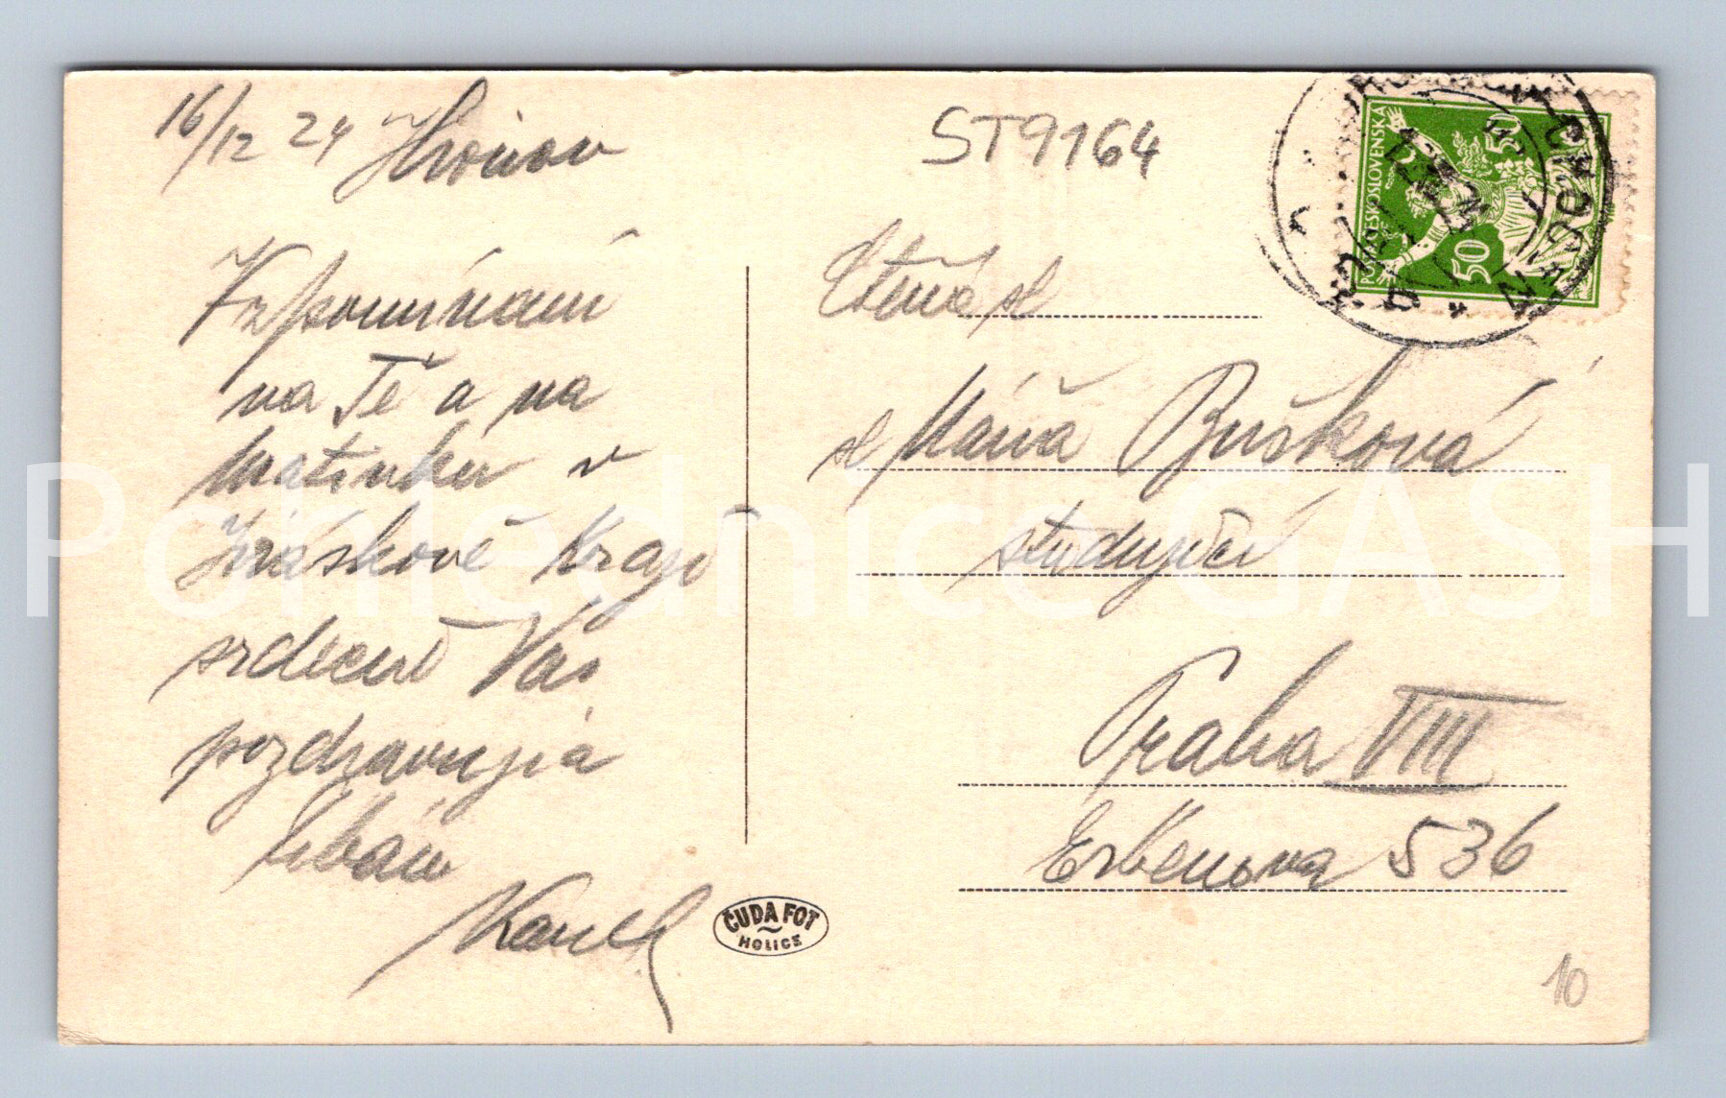 16/12 24 Hronov
Vzpomínám
na Tě a na
matinku v
Jiráskově kraji
srdečně Vás
pozdravuji a
líbám
Karel
ČUDA FOT
HOLICE
ST9164
Ctěná sl
sl Máňa Bušková
studující
Praha VIII
Erbenova 536
10
POŠTA ČESKOSLOVENSKÁ
50 50
Pohlednice GASH